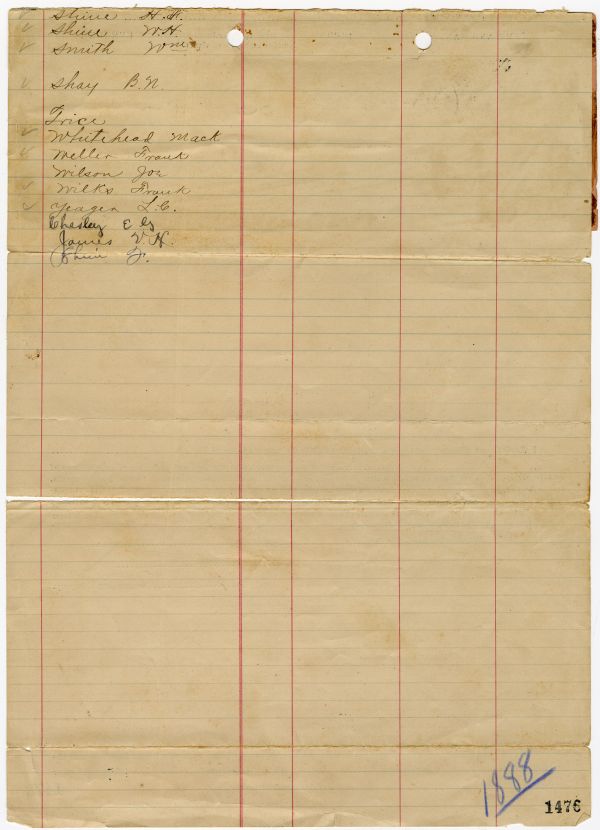 ✓ Shine H. A.
✓ Shine W. H.
✓ Smith Wm
✓ Shay B. N.
Trice
✓ Whitehead Mack
✓ Weller Frank
Wilson Joe
✓ Wilks Frank
✓ Yeager L. C.
Chesley E G
James V. H.
1888
1476